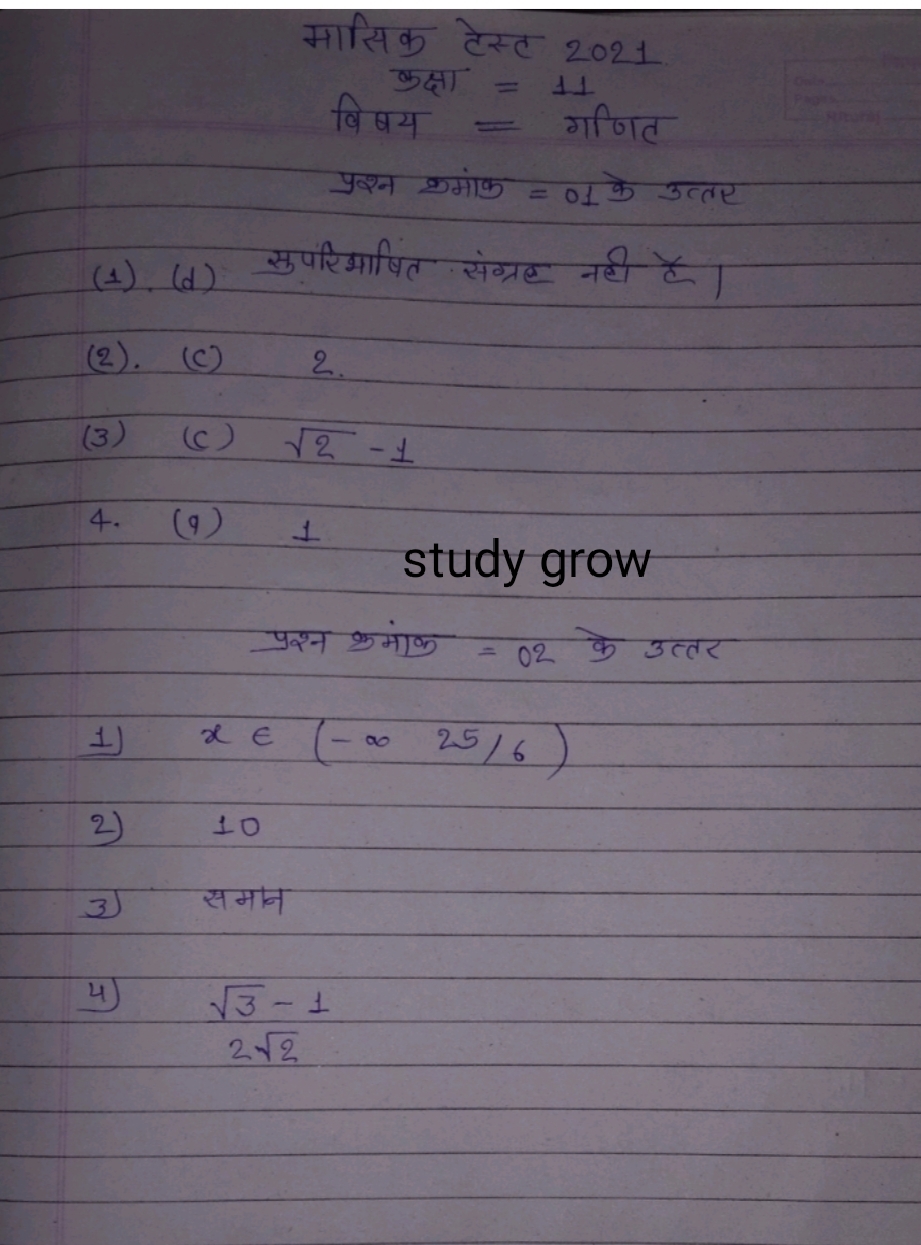 मासिक टेस्ट 2021
कक्षा = 11
विषय = गणित
प्रश्न क्रमांक = 01 के उत्तर
(1). (d) सुपरिभाषित संग्रह नही है |
(2). (C) 2.
(3) (C) √2 - 1
4. (a) 1
study grow
प्रश्न क्रमांक = 02 के उत्तर
1) x ∈ (-∞ 25/6)
2) 10
3) समान
4) √3 - 1
2√2